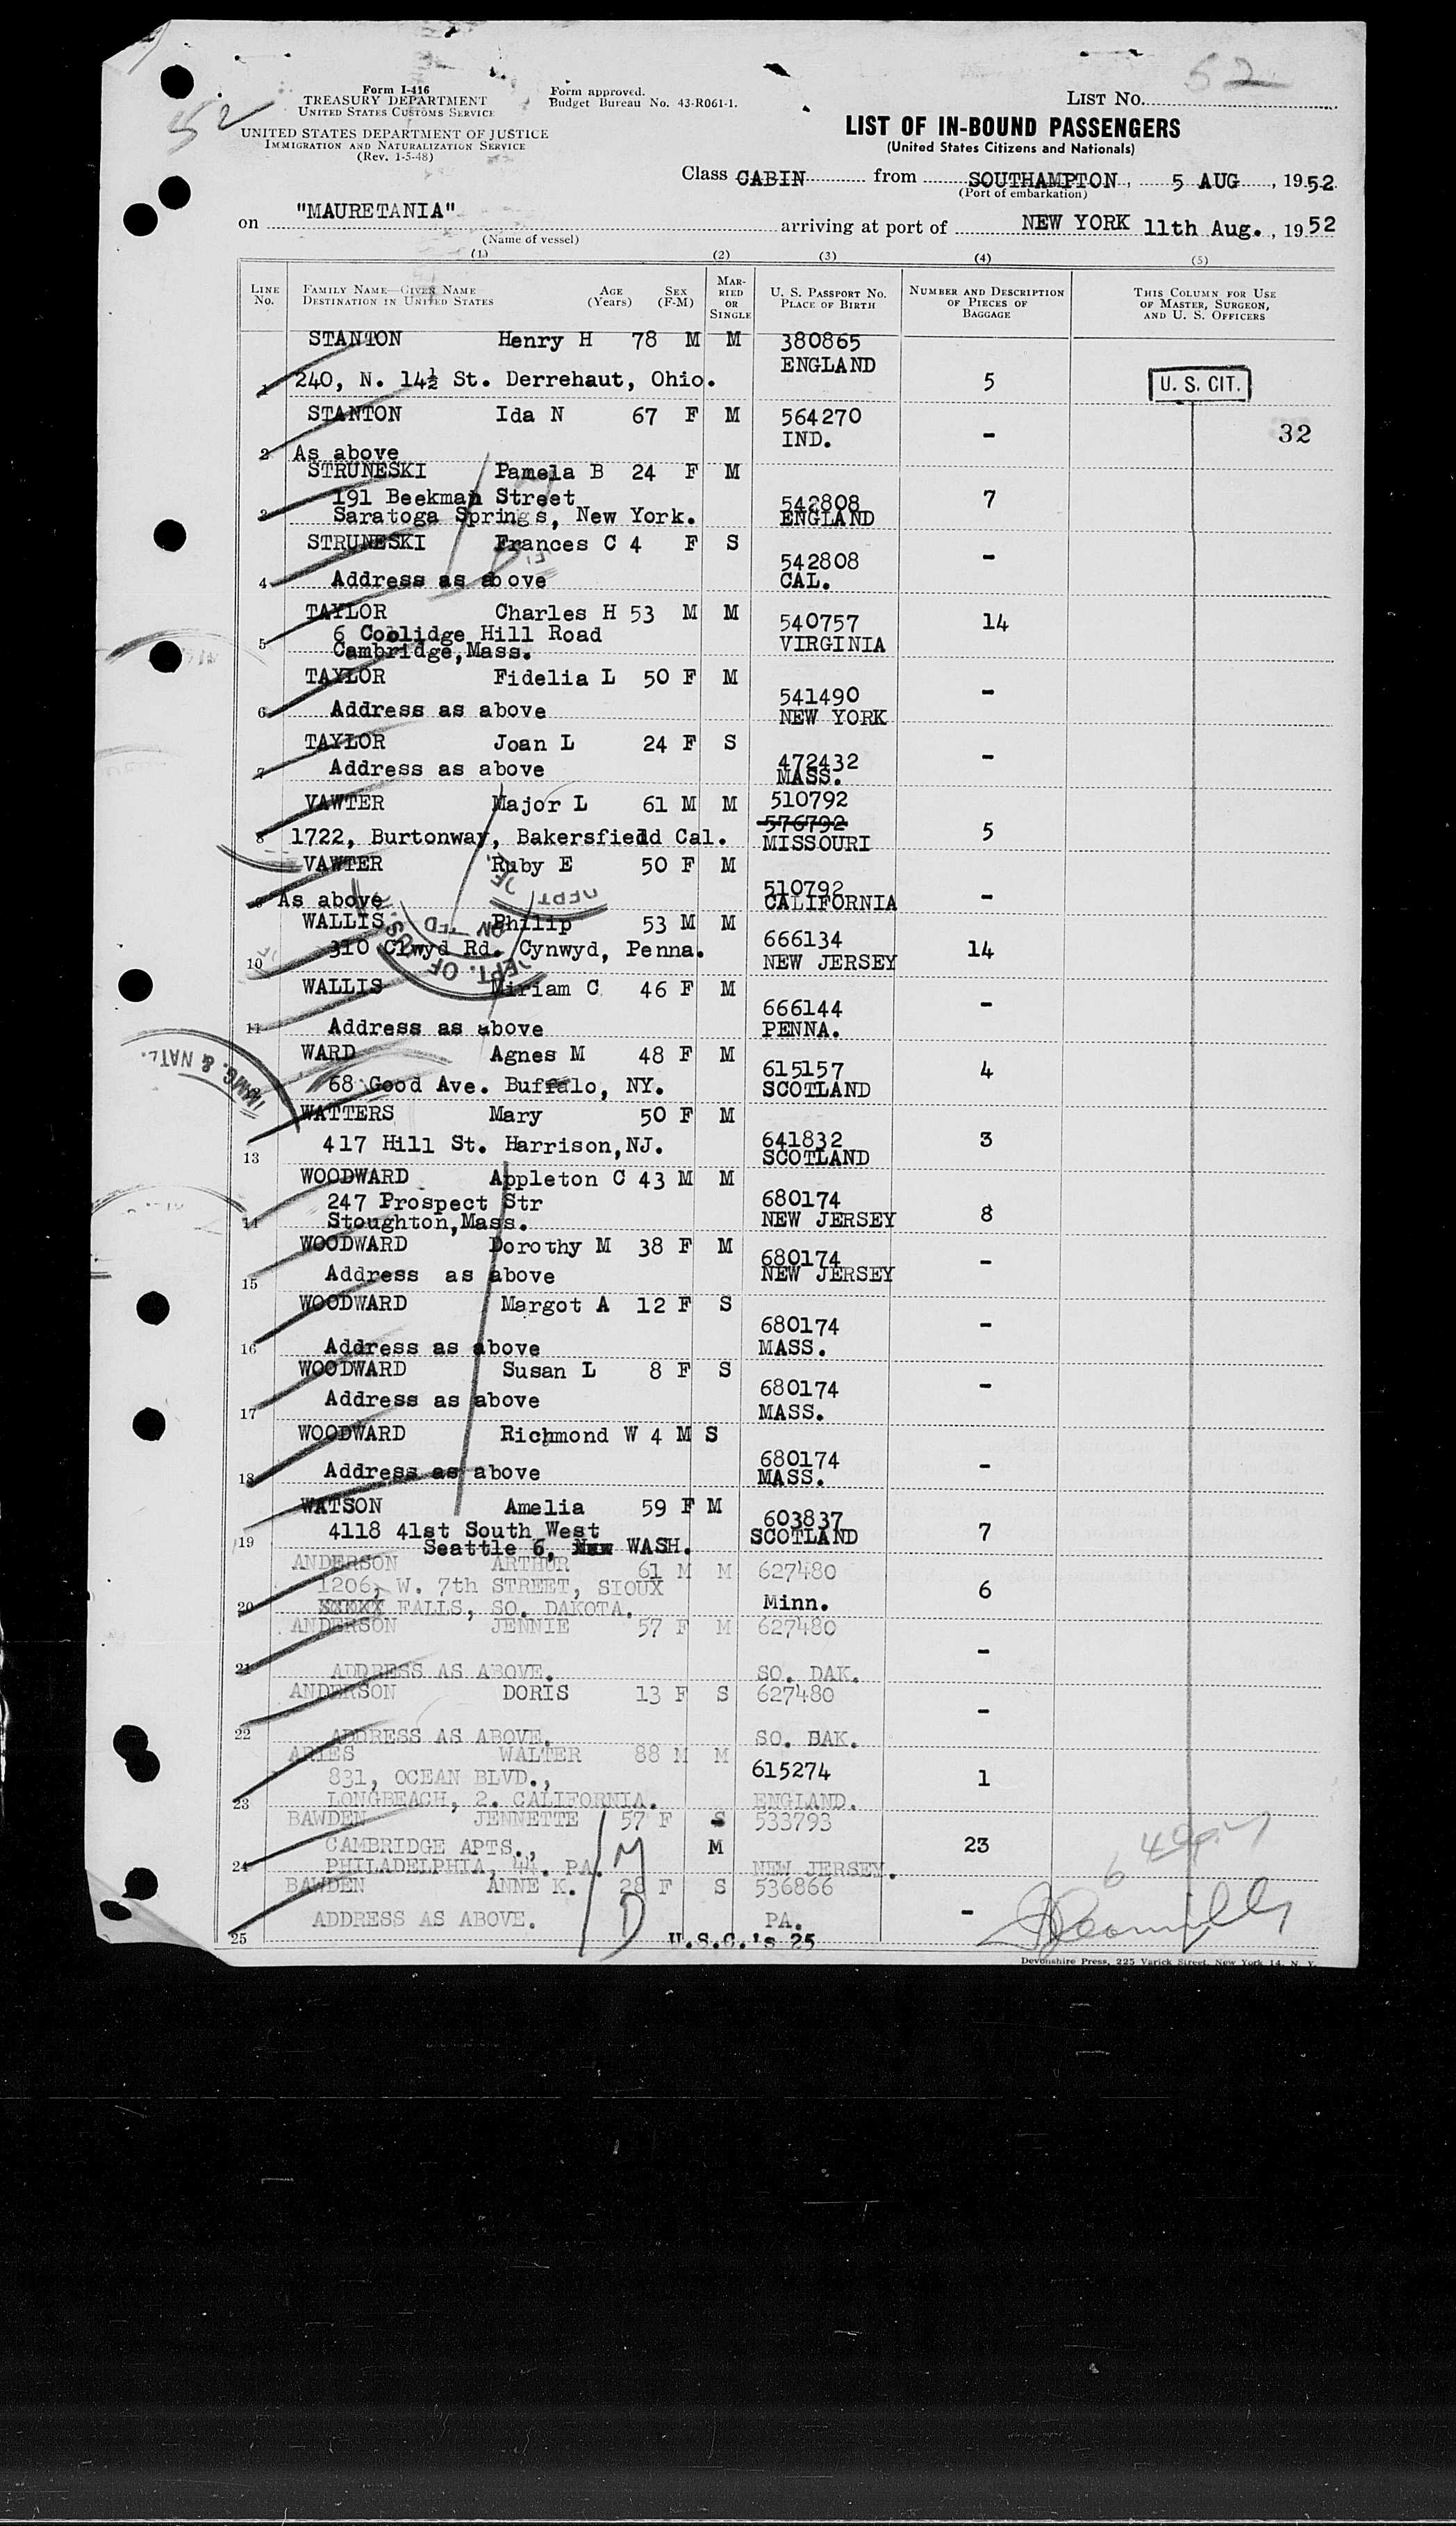 52
52
Form I-416
TREASURY DEPARTMENT
UNITED STATES CUSTOMS SERVICE
UNITED STATES DEPARTMENT OF JUSTICE
IMMIGRATION AND NATURALIZATION SERVICE
(Rev. 1-5-48)
Form approved.
Budget Bureau No. 43-R061-1.
LIST No.
LIST OF IN-BOUND PASSENGERS
(United States Citizens and Nationals)
Class CABIN from SOUTHAMPTON, 5 AUG, 1952
(Port of embarkation)
on "MAURETANIA" arriving at port of NEW YORK 11th Aug., 1952
(Name of vessel)
(1) (2) (3) (4) (5)
LINE No. FAMILY NAME—GIVEN NAME DESTINATION IN UNITED STATES AGE (Years) SEX (F-M) MARRIED OR SINGLE U. S. PASSPORT NO. PLACE OF BIRTH NUMBER AND DESCRIPTION OF PIECES OF BAGGAGE THIS COLUMN FOR USE OF MASTER, SURGEON, AND U. S. OFFICERS
STANTON Henry H 78 M M 380865
ENGLAND
1 240, N. 14½ St. Derrehaut, Ohio. 5 U. S. CIT.
STANTON Ida N 67 F M 564270
IND. - 32
2 As above
STRUNESKI Pamela B 24 F M
191 Beekman Street 542808 7
3 Saratoga Springs, New York. ENGLAND
STRUNESKI Frances C 4 F S
542808 -
4 Address as above CAL.
TAYLOR Charles H 53 M M 540757 14
6 Coolidge Hill Road VIRGINIA
5 Cambridge, Mass.
TAYLOR Fidelia L 50 F M
541490 -
6 Address as above NEW YORK
TAYLOR Joan L 24 F S
472432 -
7 Address as above MASS.
VAWTER Major L 61 M M 510792
576792
8 1722, Burtonway, Bakersfield Cal. MISSOURI 5
VAWTER Ruby E 50 F M
510792
9 As above CALIFORNIA -
WALLIS Philip 53 M M
666134
10 310 Clwyd Rd. Cynwyd, Penna. NEW JERSEY 14
WALLIS Miriam C 46 F M
666144 -
11 Address as above PENNA.
WARD Agnes M 48 F M
615157 4
68 Good Ave. Buffalo, NY. SCOTLAND
WATTERS Mary 50 F M
641832 3
13 417 Hill St. Harrison, NJ. SCOTLAND
WOODWARD Appleton C 43 M M
247 Prospect Str 680174
14 Stoughton, Mass. NEW JERSEY 8
WOODWARD Dorothy M 38 F M
680174 -
15 Address as above NEW JERSEY
WOODWARD Margot A 12 F S
680174 -
16 Address as above MASS.
WOODWARD Susan L 8 F S
680174 -
17 Address as above MASS.
WOODWARD Richmond W 4 M S
680174 -
18 Address as above MASS.
WATSON Amelia 59 F M
4118 41st South West 603837
19 Seattle 6, WASH. SCOTLAND 7
ANDERSON ARTHUR 61 M M 627480
1206, W. 7th STREET, SIOUX 6
20 FALLS, SO. DAKOTA. Minn.
ANDERSON JENNIE 57 F M 627480
-
21 ADDRESS AS ABOVE. SO. DAK.
ANDERSON DORIS 13 F S 627480
-
22 ADDRESS AS ABOVE. SO. DAK.
ARIES WALTER 88 M M
831, OCEAN BLVD., 615274 1
23 LONGBEACH, 2. CALIFORNIA. ENGLAND.
BAWDEN JENNETTE 57 F S 533793
CAMBRIDGE APTS., M 23
24 PHILADELPHIA, 44. PA. NEW JERSEY.
BAWDEN ANNE K. 28 F S 536866
ADDRESS AS ABOVE. PA. -
25 U.S.C.'s 25
M
D
IMMG. & NATZ.
DEPT. OF
Devonshire Press, 225 Varick Street, New York 14, N. Y.